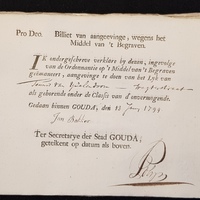 Pro Deo. Billet van aangeevinge, wegens het
Middel van 't Begraven.
IK ondergeschreve verklare by desen, ingevolge
van de Ordonnantie op 't Middel van 't Begraven
geëmaneert, aangevinge te doen van het Lyk van
als gehorende onder de Classis van d'onvermogende.
Gedaan binnen GOUDA, den 13 Jany 1799
Jan
Ter Secretarye der Stad GOUDA,
geteikent op datum als boven.